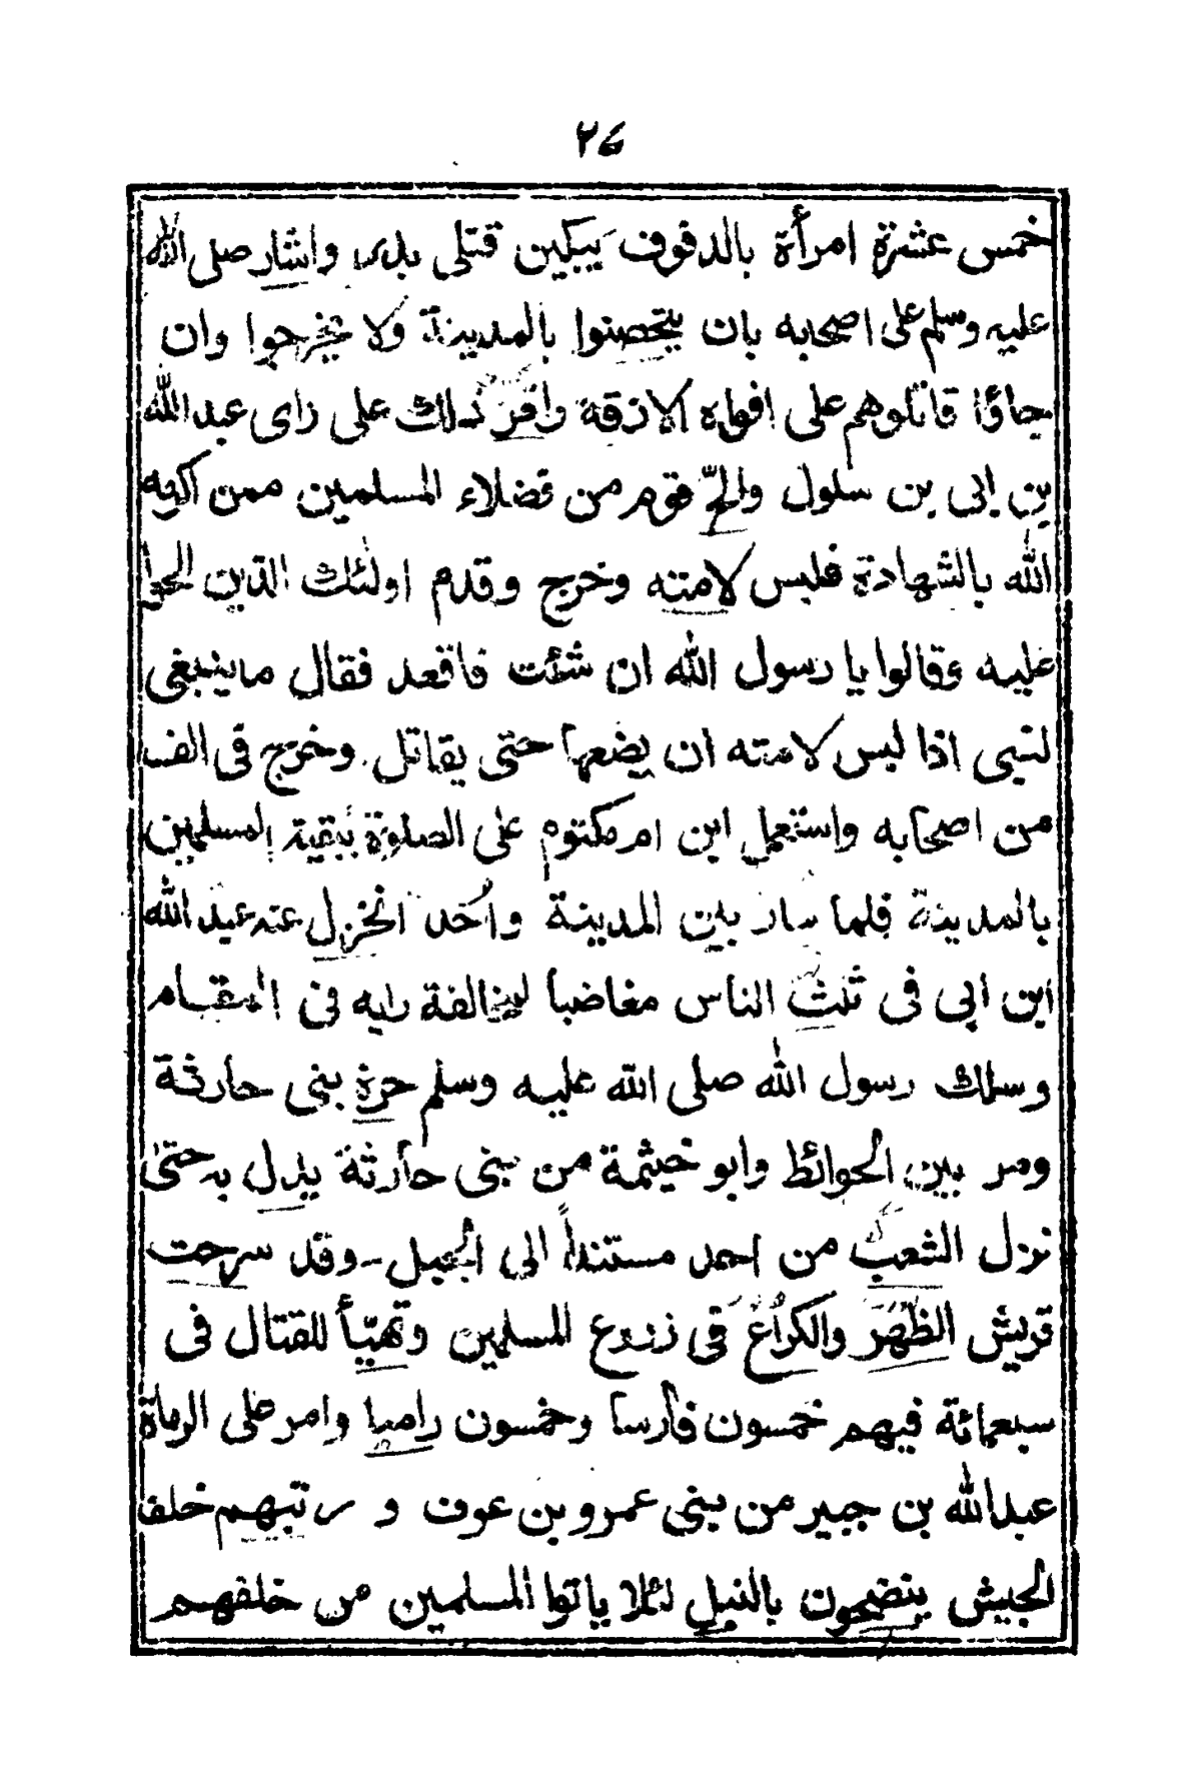 ٢٤
خمس عشرة امرأة بالدفوف يبكين قتلى بدر واشار صلى الله
عليه وسلم على اصحابه بان يتحصنوا بالمدينة ولا يخرجوا وان
جاؤا قاتلوهم على افواه الازقة واقر ذلك على راى عبد الله
بن ابى بن سلول والحّ قوم من فضلاء المسلمين ممن اكرمه
الله بالشهادة فلبس لامته وخرج وقدم اولئك الذين الحوا
عليه وقالوا يا رسول الله ان شئت فاقعد فقال ما ينبغى
لنبى اذا لبس لامته ان يضعها حتى يقاتل وخرج فى الف
من اصحابه واستعمل ابن ام مكتوم على الصلوة ببقية المسلمين
بالمدينة فلما سار بين المدينة واُحُد انخزل عنه عبد الله
ابن ابى فى ثلث الناس مغاضبا لمخالفة رايه فى المقام
وسلك رسول الله صلى الله عليه وسلم حرة بنى حارثة
ومر بين الحوائط وابو خيثمة من بنى حارثة يدل به حتى
نزل الشعب من احد مستنداً الى الجبل - وقد سرحت
قريش الظهر والكراع فى زروع المسلمين وتهيّأ للقتال فى
سبعمائة فيهم خمسون فارسا وخمسون راميا وامر على الرماة
عبد الله بن جبير من بنى عمرو بن عوف و رتبهم خلف
الجيش ينضحون بالنبل لئلا ياتوا المسلمين من خلفهم